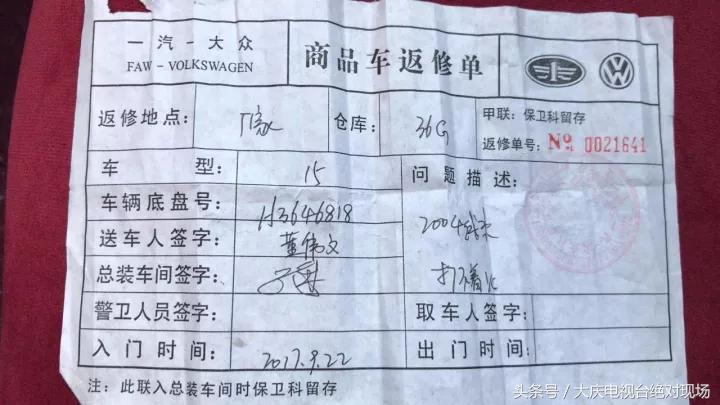 一汽-大众
FAW - VOLKSWAGEN
商品车返修单
返修地点:
仓库: 36G
甲联: 保卫科留存
返修单号: No 0021641
车 型: 15
问题描述:
车辆底盘号: H3646818
送车人签字: 董伟文
2004
打不着火
总装车间签字:
警卫人员签字:
取车人签字:
入门时间: 2017.9.22
出门时间:
注: 此联入总装车间时保卫科留存
头条号 / 大庆电视台绝对现场